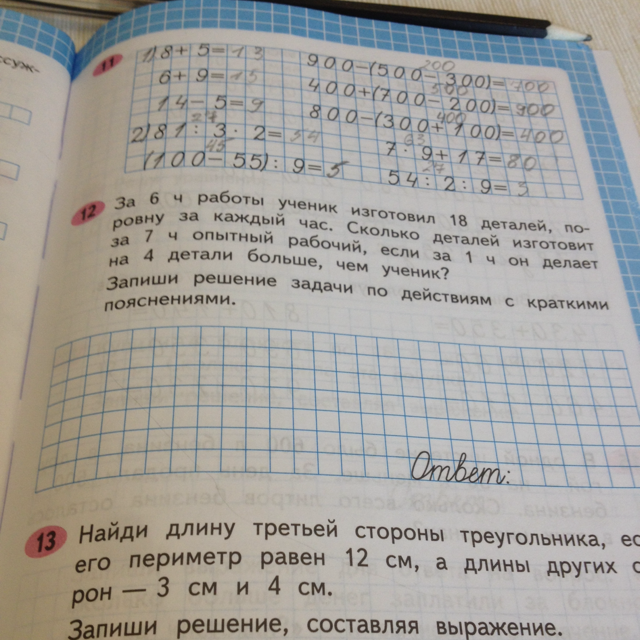 ссуж-
11
1) 8 + 5 = 13
6 + 9 = 15
14 − 5 = 9
27
2) 81 : 3 · 2 = 54
45
(100 − 55) : 9 = 5
200
900 − (500 − 300) = 700
500
400 + (700 − 200) = 900
400
800 − (300 + 100) = 400
63
7 · 9 + 17 = 80
27
54 : 2 : 9 = 3
12 За 6 ч работы ученик изготовил 18 деталей, по-
ровну за каждый час. Сколько деталей изготовит
за 7 ч опытный рабочий, если за 1 ч он делает
на 4 детали больше, чем ученик?
Запиши решение задачи по действиям с краткими
пояснениями.
Ответ:
13 Найди длину третьей стороны треугольника, ес
его периметр равен 12 см, а длины других с
рон — 3 см и 4 см.
Запиши решение, составляя выражение.